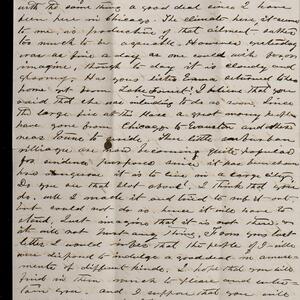 with the same thing a good deal since I have
been here in Chicago. The climate here it seems
to me, is productive of that ailment - rather
too much to be agreeable. However yesterday
was as fine a day as one could with
imagine, though to day it is cloudy and
gloomy. Has your sister Emma returned
home yet from Lake Forest? I believe that you
said that she was intending to do so soon. Since
the large fire at the a great many people
have gone from Chicago to Evanston and other
near to reside. These little suburban
villages are now becoming quite popular
for residence purposes since it has been shown
how dangerous it is to live in a large city.
Do you see that blot above? I think that you
do, well I made it and tried to rub it out
but could not do so, hence it will have to
stand, Just imagine that it is not there, or
it will not hurt any thing. From your last
letter I would infer that the people of
were disposed to indulge a good deal in amuse-
ments of different kinds. I hope that you will
find in them much to please and enter-
tain you, and I suppose that you will